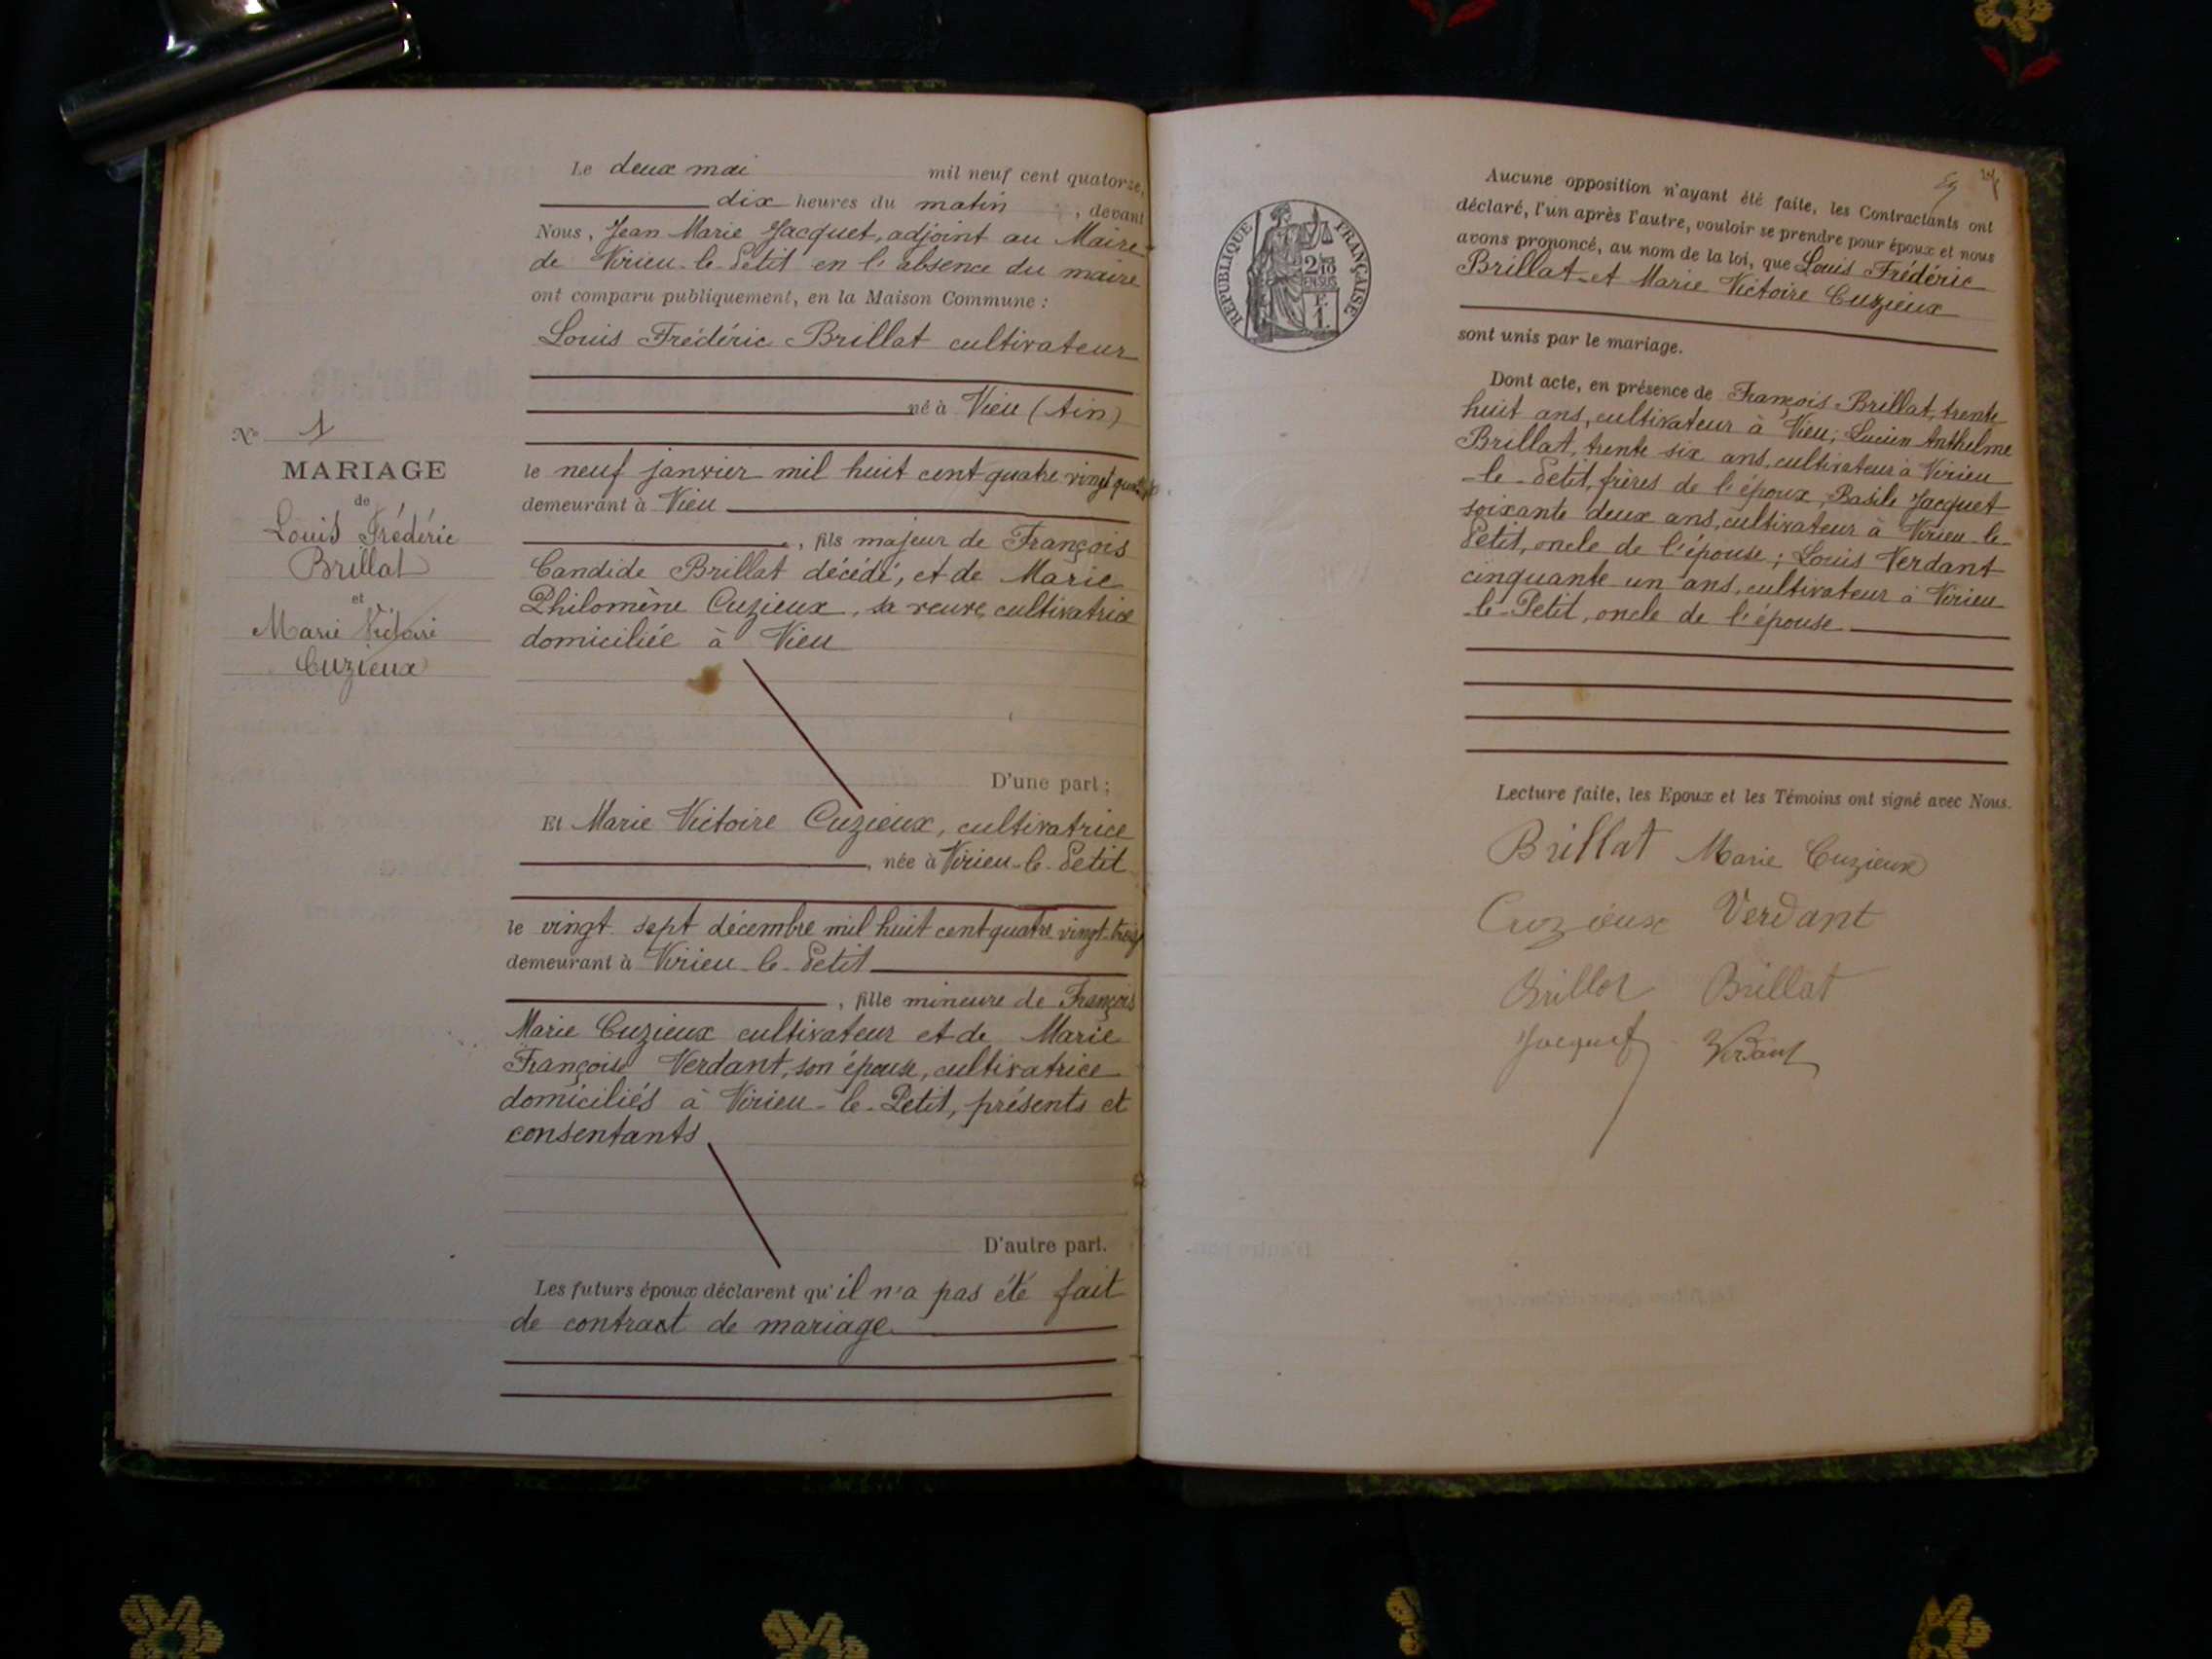 Le deux mai mil neuf cent quatorze,
dix heures du matin, devant
Nous, Jean Marie Jacquet, adjoint au Maire
de Virieu-le-Petit en l'absence du maire
ont comparu publiquement, en la Maison Commune :
Louis Frédéric Brillat cultivateur
né à Vieu (Ain)
le neuf janvier mil huit cent quatre vingt
demeurant à Vieu
, fils majeur de François
Candide Brillat décédé, et de Marie
Philomène Cuzieux, sa veuve, cultivatrice
domiciliée à Vieu
D'une part ;
Et Marie Victoire Cuzieux, cultivatrice
, née à Virieu-le-Petit
le vingt sept décembre mil huit cent quatre vingt treize
demeurant à Virieu-le-Petit
, fille mineure de François
Marie Cuzieux cultivateur et de Marie
Françoise Verdant, son épouse, cultivatrice
domiciliés à Virieu-le-Petit, présents et
consentants
D'autre part.
Les futurs époux déclarent qu'il n'a pas été fait
de contract de mariage
No 1
MARIAGE
de
Louis Frédéric
Brillat
et
Marie Victoire
Cuzieux
RÉPUBLIQUE FRANÇAISE
2/10
EN SUS
F.
1.
Aucune opposition n'ayant été faite, les Contractants ont
déclaré, l'un après l'autre, vouloir se prendre pour époux et nous
avons prononcé, au nom de la loi, que Louis Frédéric
Brillat et Marie Victoire Cuzieux
sont unis par le mariage.
Dont acte, en présence de François Brillat, trente
huit ans, cultivateur à Vieu; Lucien Anthelme
Brillat, trente six ans, cultivateur à Virieu
-le-Petit, frères de l'époux; Basile Jacquet
soixante deux ans, cultivateur à Virieu-le-
Petit, oncle de l'épouse; Louis Verdant
cinquante un ans, cultivateur à Virieu
-le-Petit, oncle de l'épouse
Lecture faite, les Epoux et les Témoins ont signé avec Nous.
Brillat Marie Cuzieux
Cuzieux Verdant
Brillat Brillat
Jacquet Verdant